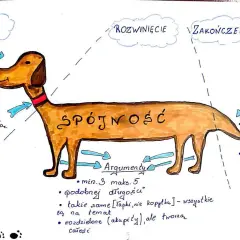 ROZWINIĘCIE
ZAKOŃCZE
SPÓJNOŚĆ
Argumenty
• min. 3 maks. 5
• podobnej długości
• takie same [łapki, nie kopytka] - wszystkie
są na temat
• rozdzielone (akapity), ale tworzą
całość